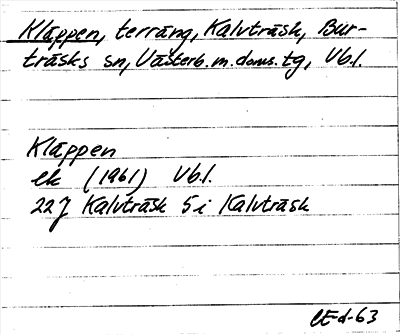 Kläppen, terräng, Kalvträsk, Bur-
träsks sn, Västerb. m. doms. tg, Vb l.
Kläppen
ek (1961) Vb l.
22J Kalvträsk 5 i Kalvträsk